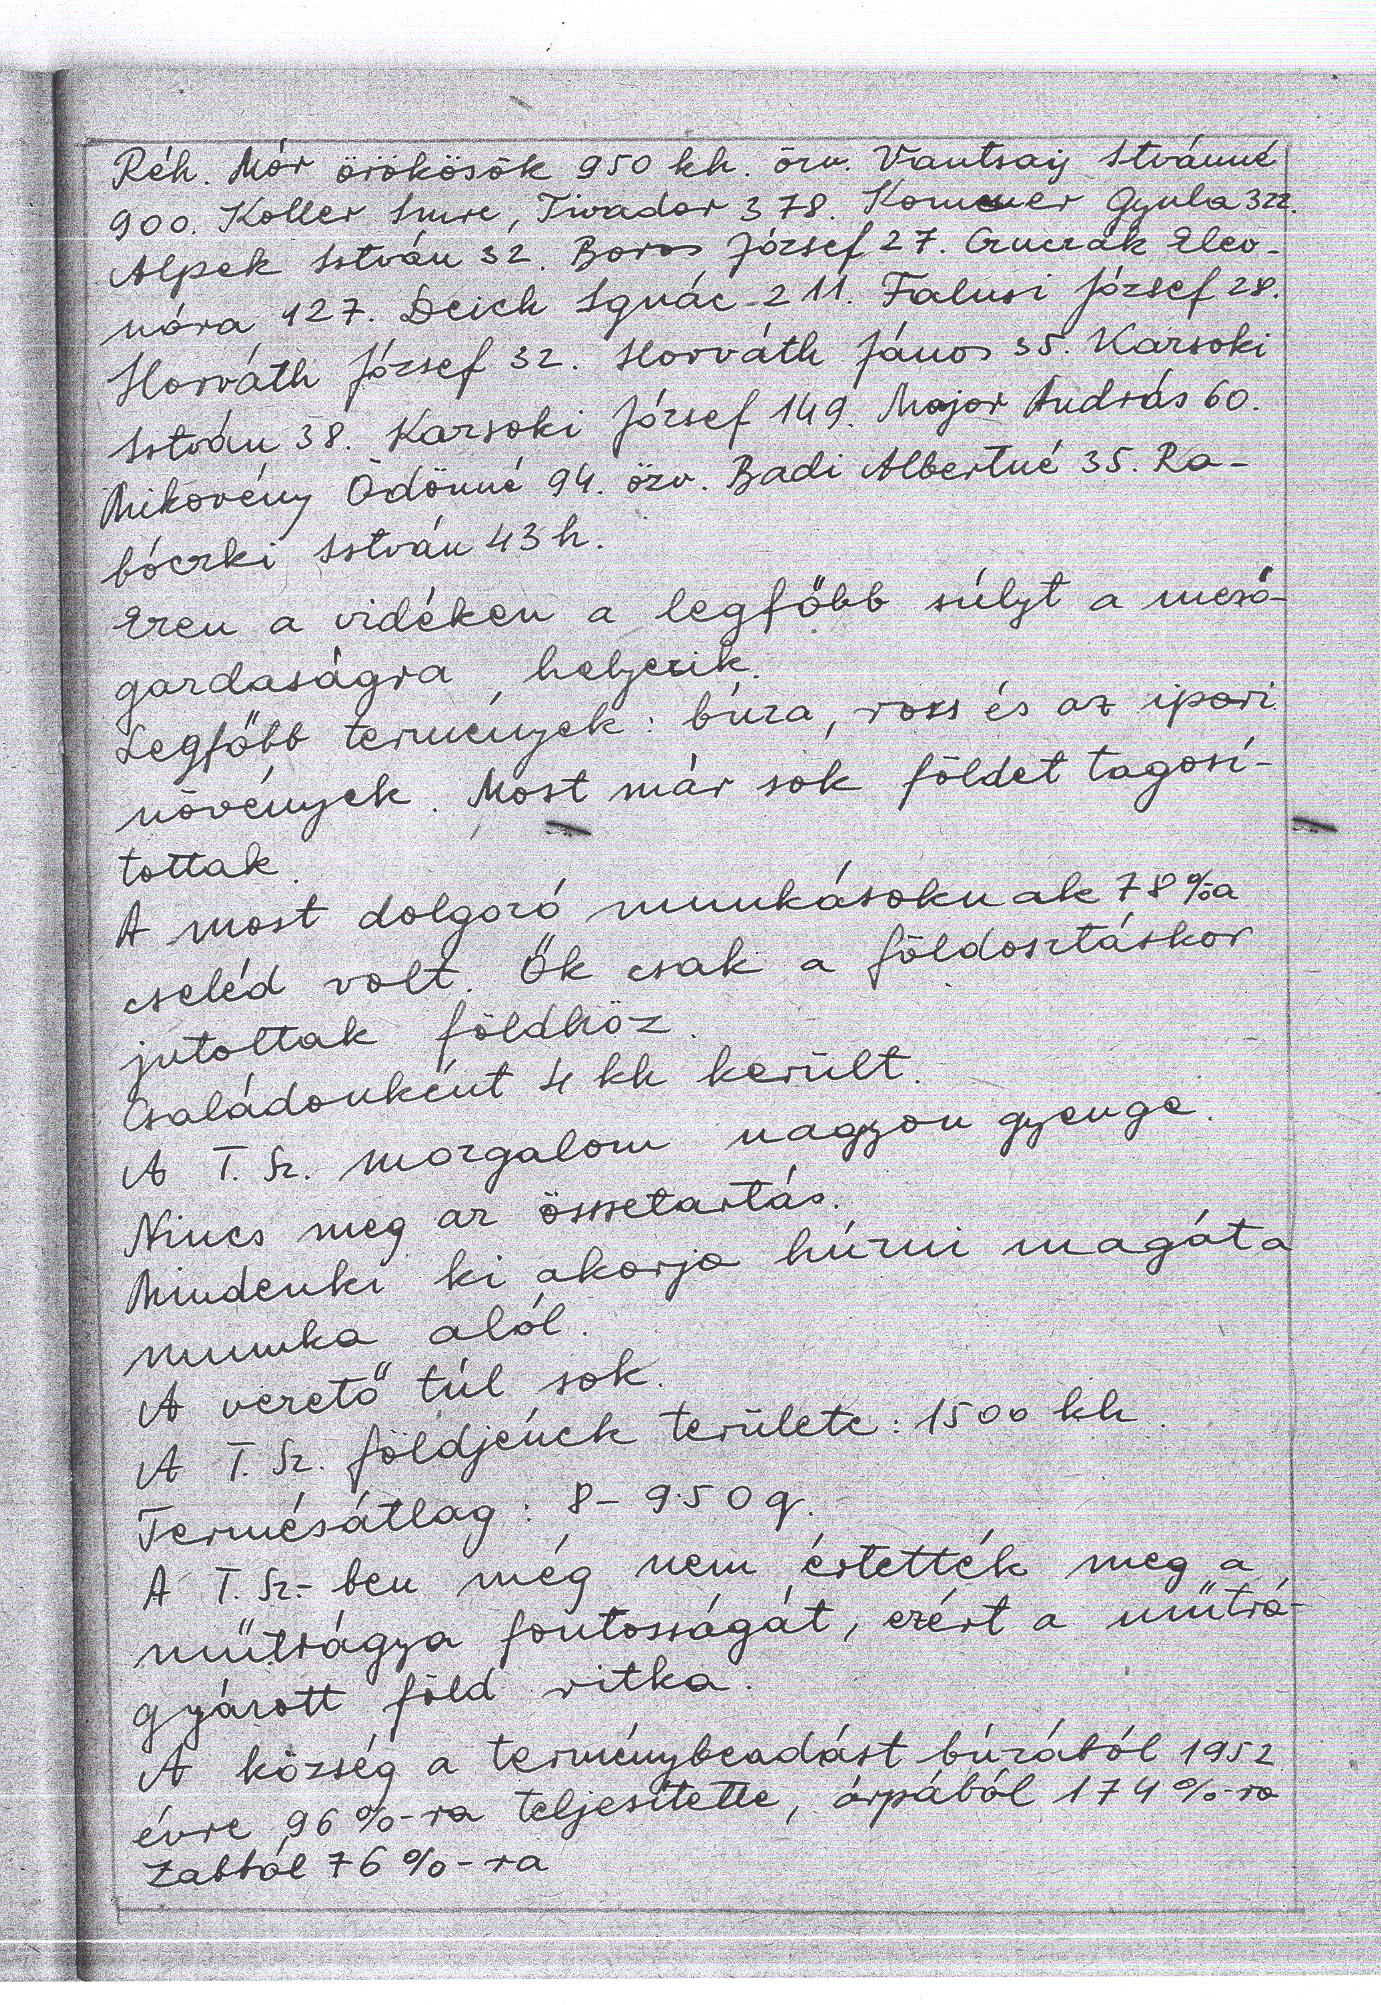 Réh. Mór örökösök 950 kh. özv. Vantsay Istvánné
900. Koller Imre, Tivador 378. Kommer Gyula 322.
Alpek István 32. Boros József 27. Czuczak Eleo-
nóra 427. Deich Ignác 211. Falusi József 28.
Horváth József 32. Horváth János 35. Karsoki
István 38. Karsoki József 149. Major András 60.
Mikovény Ödönné 94. özv. Badi Albertné 35. Ra-
bóczki István 43 h.
Ezen a vidéken a legfőbb súlyt a mező-
gazdaságra helyezik.
Legfőbb termények: búza, rozs és az ipari
növények. Most már sok földet tagosí-
tottak.
A most dolgozó munkásoknak 78%a
cseléd volt. Ők csak a földosztáskor
jutottak földhöz.
Családonként 4 kh került.
A T. Sz. mozgalom nagyon gyenge.
Nincs meg az összetartás.
Mindenki ki akarja húzni magát a
munka alól.
A vezető túl sok.
A T. Sz. földjének területe: 1500 kh.
Termésátlag: 8 - 9.50 q.
A T. Sz-ben még nem értették meg a
műtrágya fontosságát, ezért a műtrá-
gyázott föld ritka.
A község a terménybeadást búzából 1952
évre 96%-ra teljesítette, árpából 174%-ra
Zabból 76%-ra